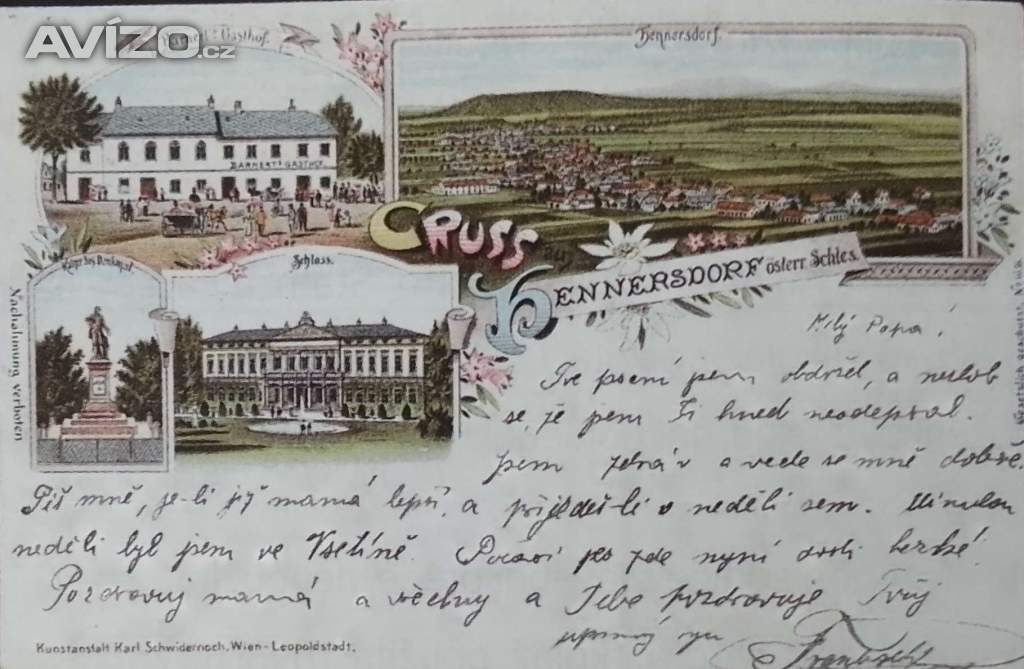 AVÍZO.cz
Barnert's Gasthof.
Hennersdorf.
BARNERT'S GASTHOF.
GRUSS aus
HENNERSDORF österr. Schles.
Schloss.
Nachahmung verboten
Gesetzlich geschützt
Milý Papa!
Tvé psaní jsem obdržel, a nezlob
se, že jsem Ti hned neodepsal.
Jsem zdráv a vede se mně dobře.
Piš mně, je-li již mamá lepší, a přijedeš-li v neděli sem. Minulou
neděli byl jsem ve Vsetíně. Počasí je zde nyní dosti hezké!
Pozdravuj mamá a všechny a Tebe pozdravuje Tvůj
upřímný syn
Kunstanstalt Karl Schwidernoch, Wien-Leopoldstadt.